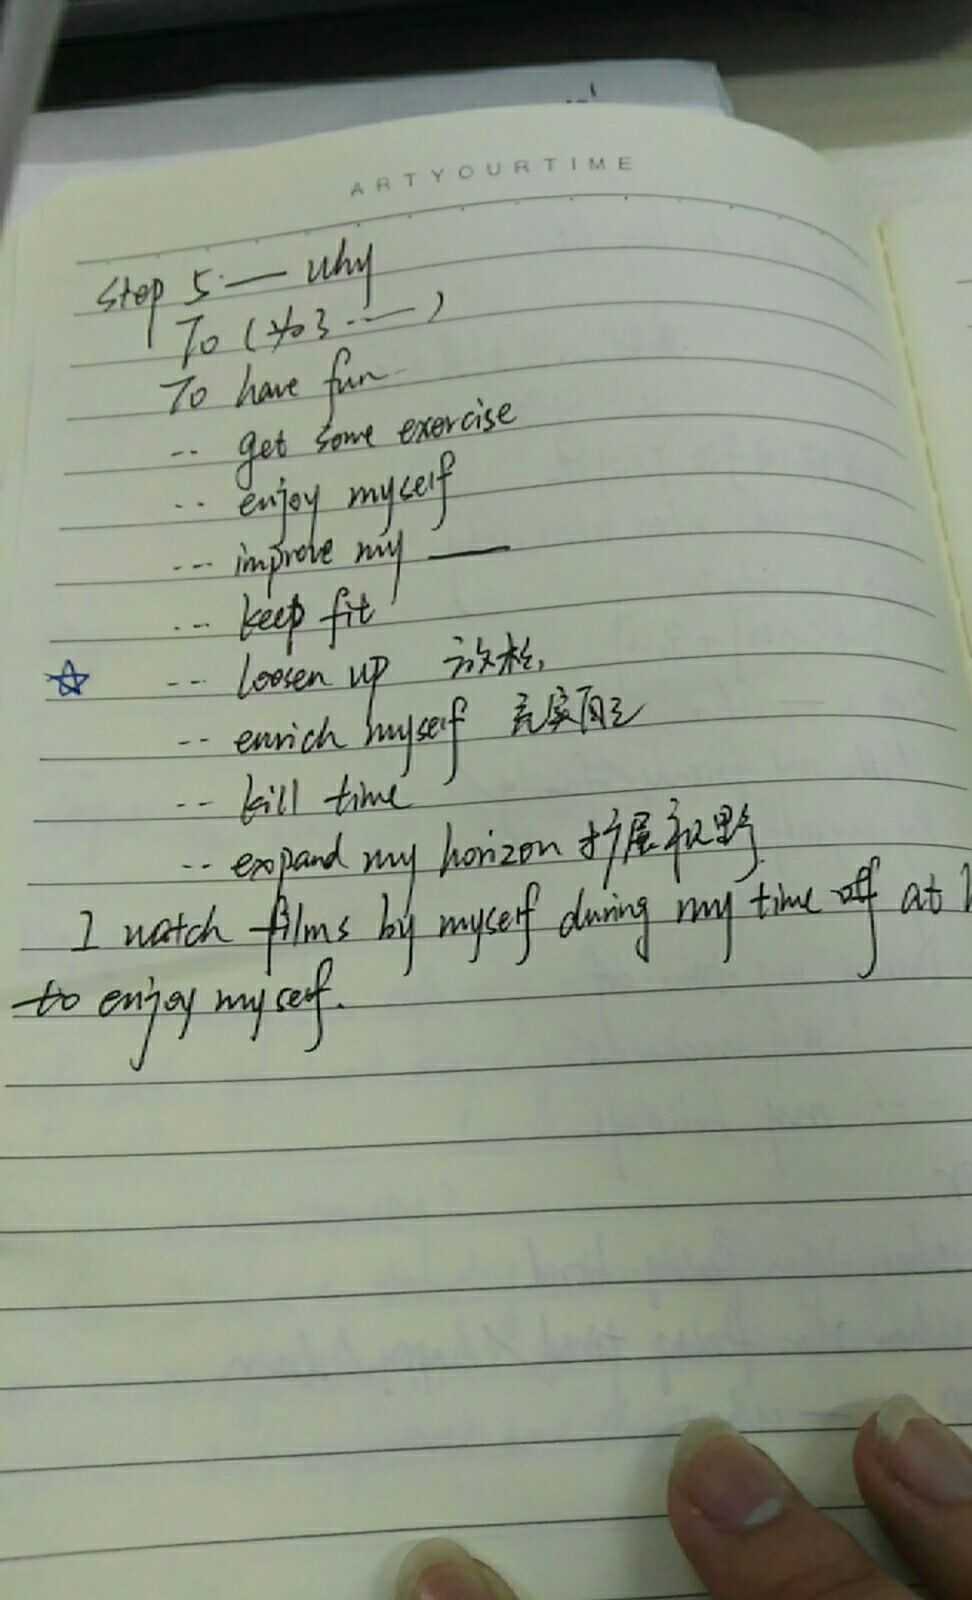 ARTYOURTIME
Step 5 — why
To (为了 ——)
To have fun
-- get some exercise
-- enjoy myself
--- improve my ——
-- keep fit
☆ -- loosen up 放松
-- enrich myself 充实自己
-- kill time
-- expand my horizon 扩展视野
I watch films by myself during my time off at
to enjoy myself.